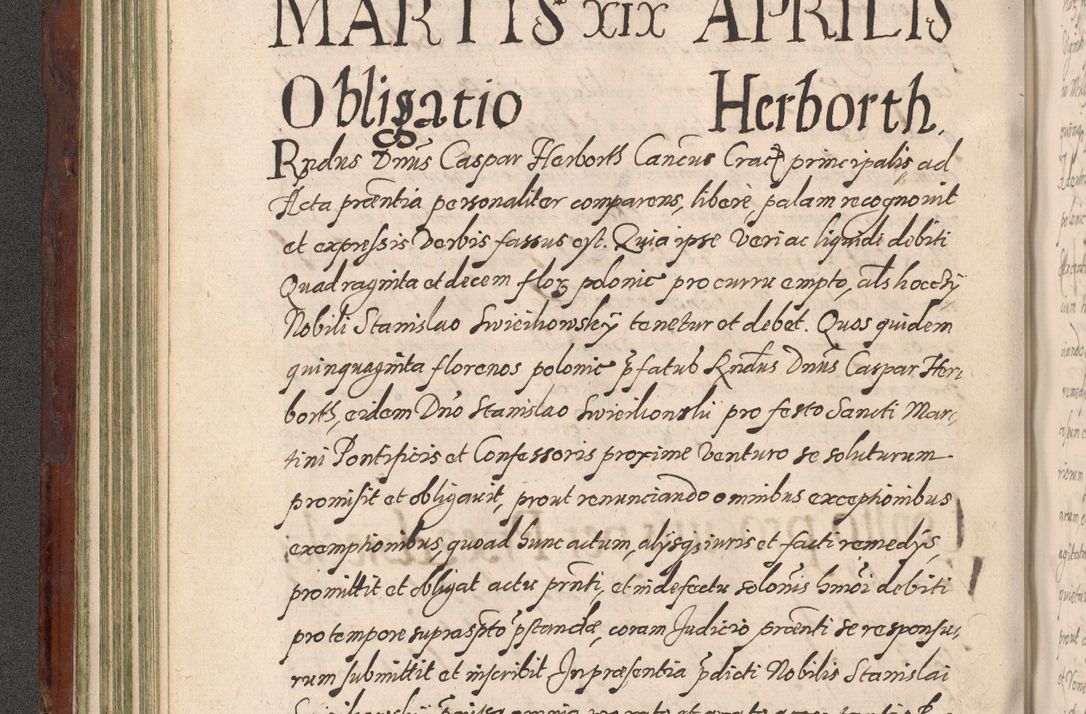 MARTIS XIX APRILIS
Obligatio Herborth.
Rndus Dnus Caspar Herborth Cancus Crac principalis ad
Acta prntia personaliter comparens, libere, palam recognovit
et expressis verbis fassus est. Quia ipse veri ac liquidi debiti
Quadraginta et decem flor polonic pro curru empto, als
Nobili Stanislao Swiecihowsky tenetur et debet. Quos quidem
quinquaginta florenos polonic pfatus Rndus Dnus Caspar Her
borth, eidem Dno Stanislao Swiecihowski pro festo Sancti Mar,
tini Pontificis et Confessoris proxime venturo se soluturum
promisit et obligavit, prout renunciando omnibus exceptionibus
exemptionibus, quoad hunc actum, alysq iuris et facti remedys,
promittit et obligat actu prnti, et in defectu solonis hmoi debiti
pro tempore suprascpto pstandae, coram Judicio prnti se responsu,
rum submittit et inscribit In praesentia pdicti Nobilis Stanislai